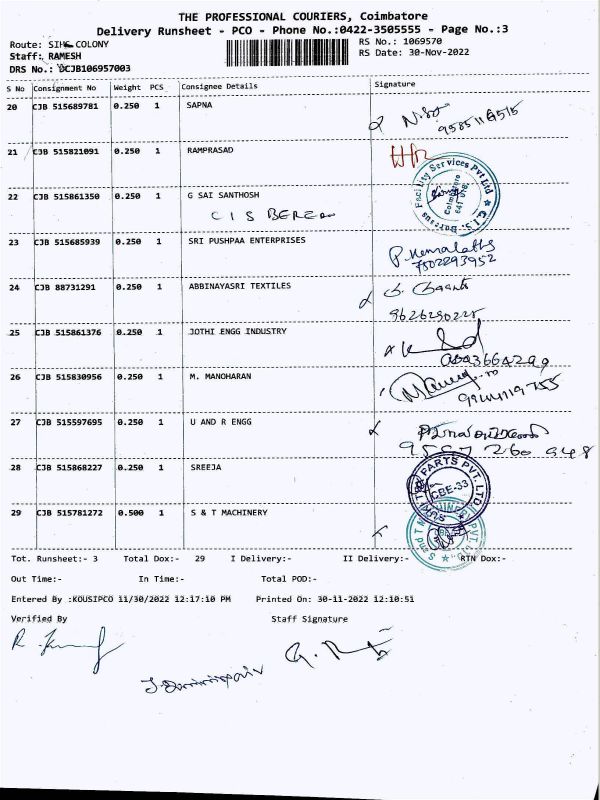 THE PROFESSIONAL COURIERS, Coimbatore
Delivery Runsheet - PCO - Phone No.:0422-3505555 - Page No.:3
Route: SIHS COLONY
RS No.: 1069570
Staff: RAMESH
RS Date: 30-Nov-2022
DRS No.: DCJB106957003
S No Consignment No Weight PCS Consignee Details Signature
20 CJB 515689781 0.250 1 SAPNA
21 CJB 515821091 0.250 1 RAMPRASAD
22 CJB 515861350 0.250 1 G SAI SANTHOSH
CIS
23 CJB 515685939 0.250 1 SRI PUSHPAA ENTERPRISES
P. Hemalatha
7502293952
24 CJB 88731291 0.250 1 ABBINAYASRI TEXTILES
9626290225
25 CJB 515861376 0.250 1 JOTHI ENGG INDUSTRY
26 CJB 515830956 0.250 1 M. MANOHARAN
27 CJB 515597695 0.250 1 U AND R ENGG
28 CJB 515868227 0.250 1 SREEJA
CBE-33
29 CJB 515781272 0.500 1 S & T MACHINERY
Tot. Runsheet:- 3 Total Dox:- 29 I Delivery:- II Delivery:- RTN Dox:-
Out Time:- In Time:- Total POD:-
Entered By :KOUSIPCO 11/30/2022 12:17:10 PM Printed On: 30-11-2022 12:10:51
Verified By Staff Signature